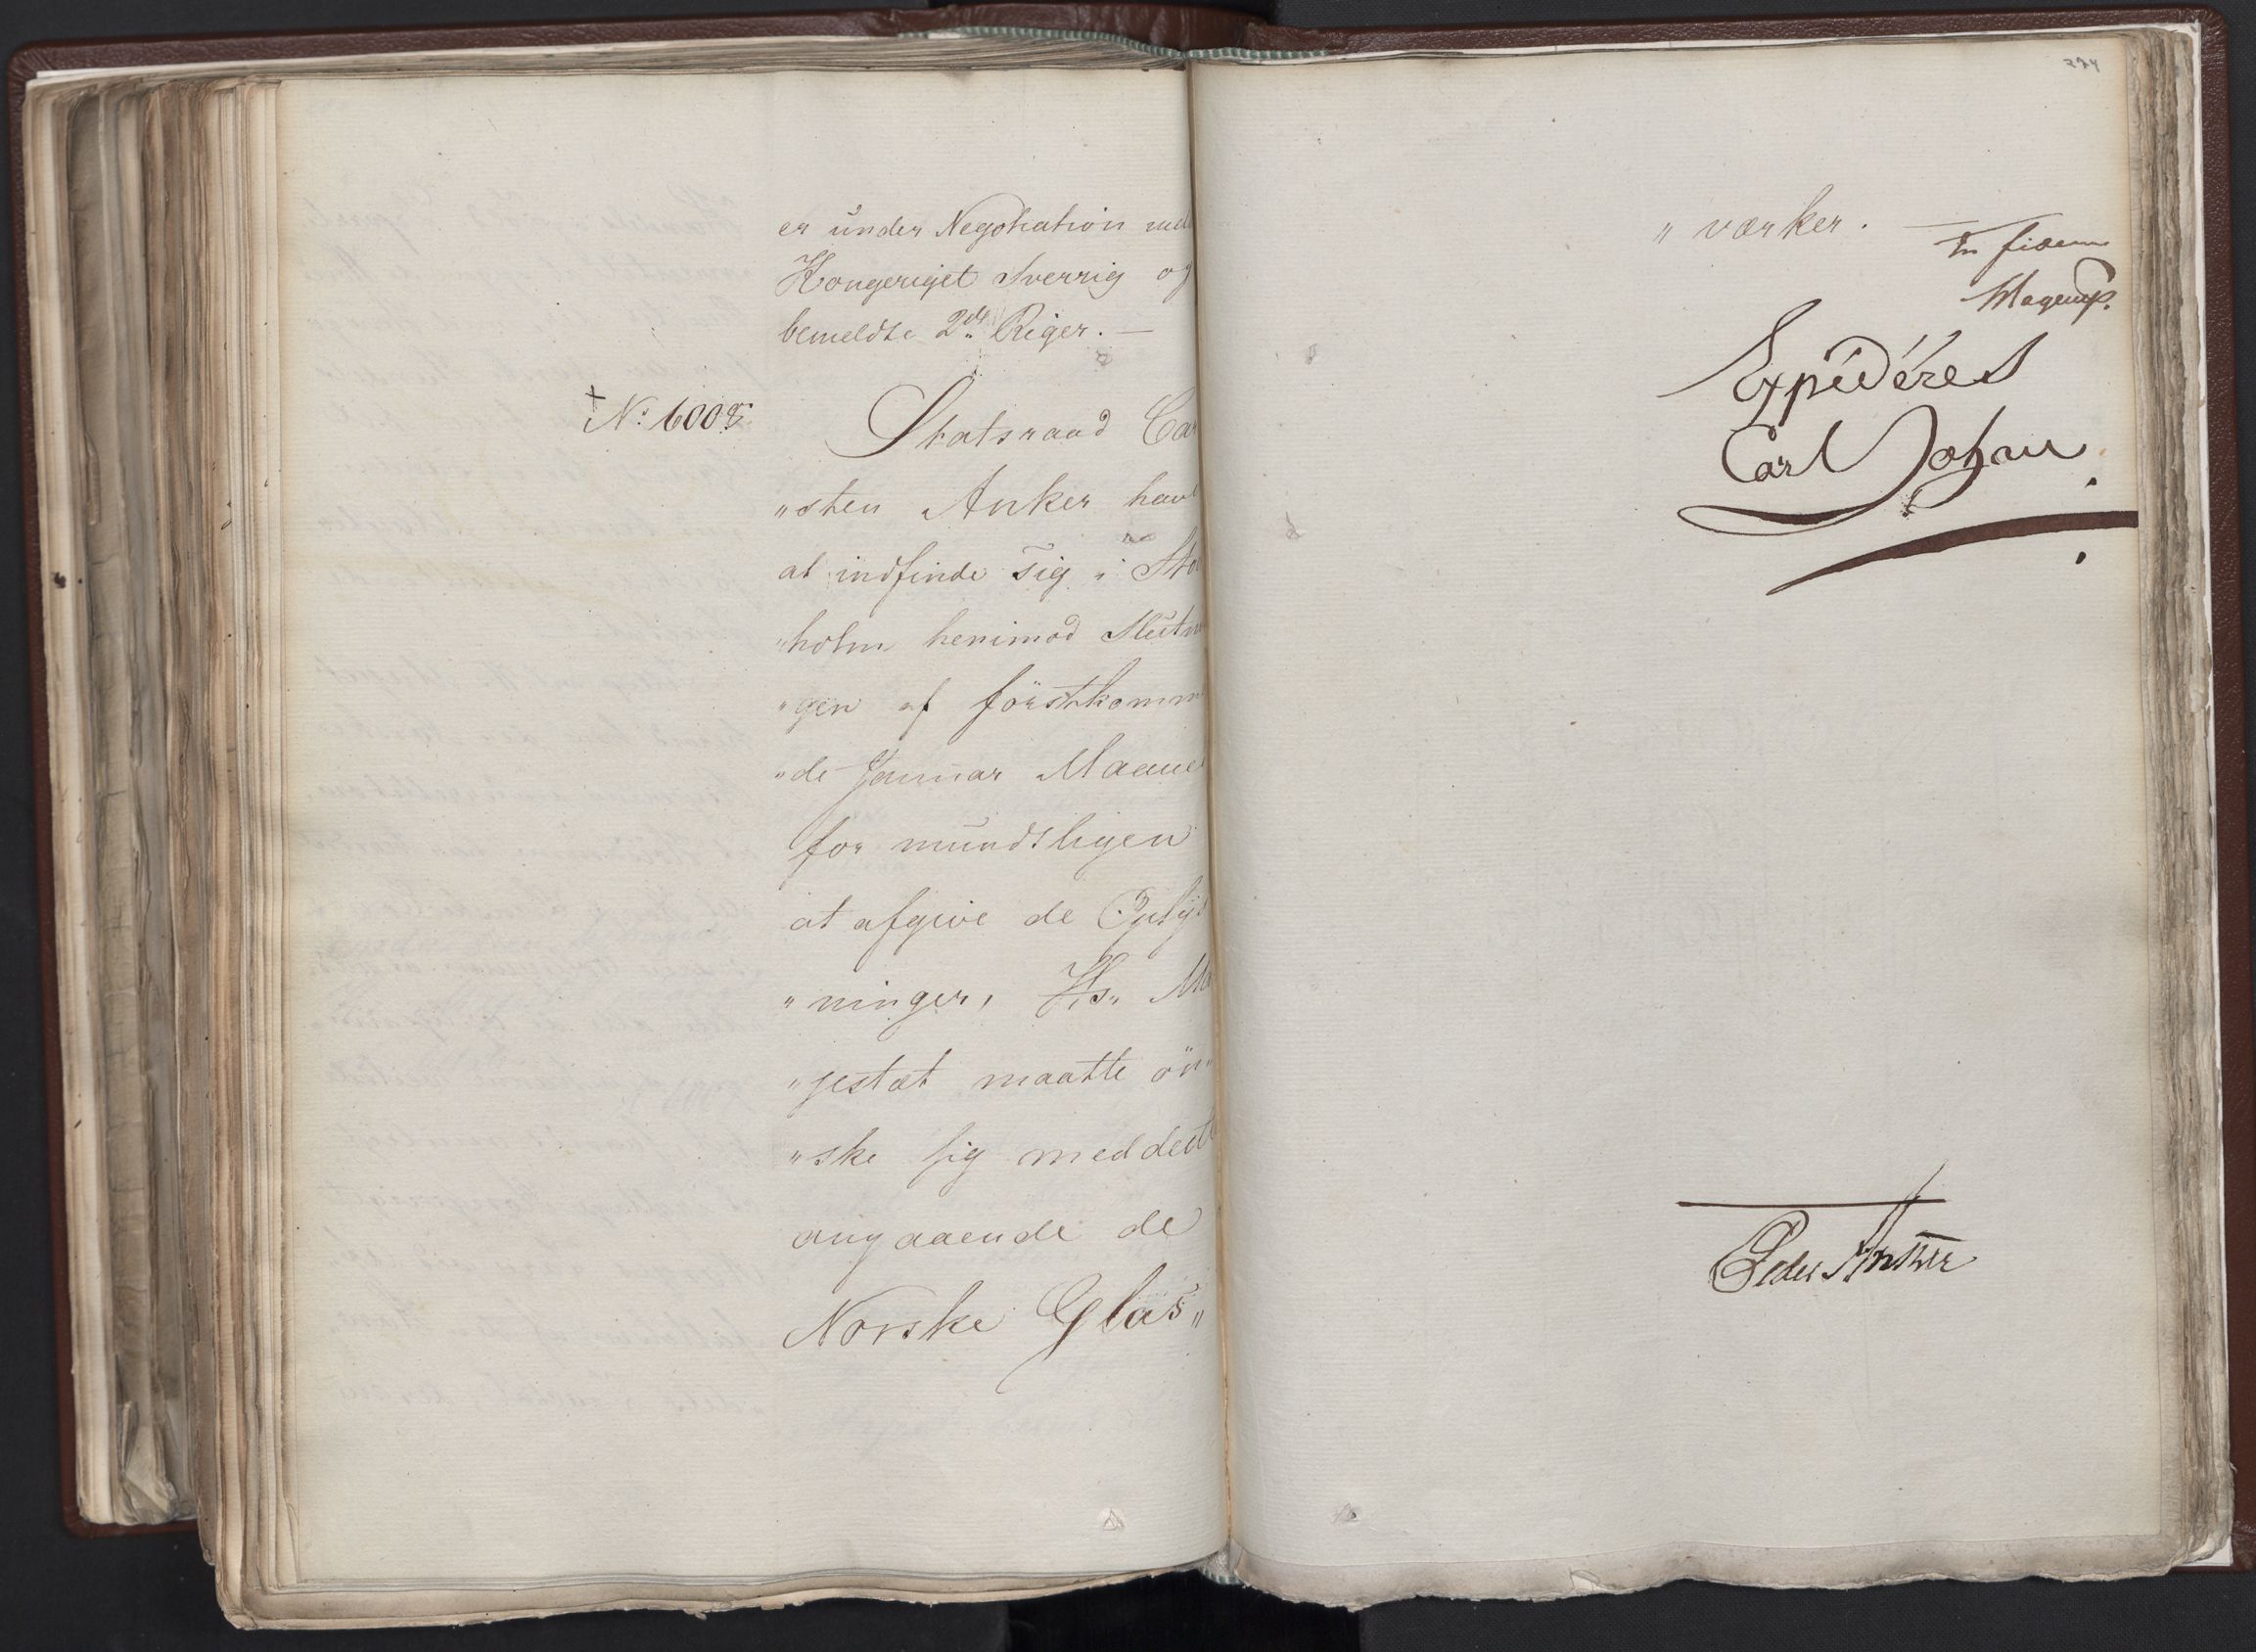 er under Negotiation mell
Kongeriget Sverrig og
bemeldte 2de Riger. —
+ No 6008
Statsraad Car
"sten Anker hav
at indfinde sig i Sto
"holm henimod Slutni
"gen af förstkomm
"de Januar Maane
for mundtligen
at afgive de Oplÿs
"ninger, Hs. Ma
"jestæt maatte ön"
"ske sig meddeelt
angaaende de
Norske Glas"
274
"værker. —
In fidem
Expéderes
Carl Johan
Peder Anker